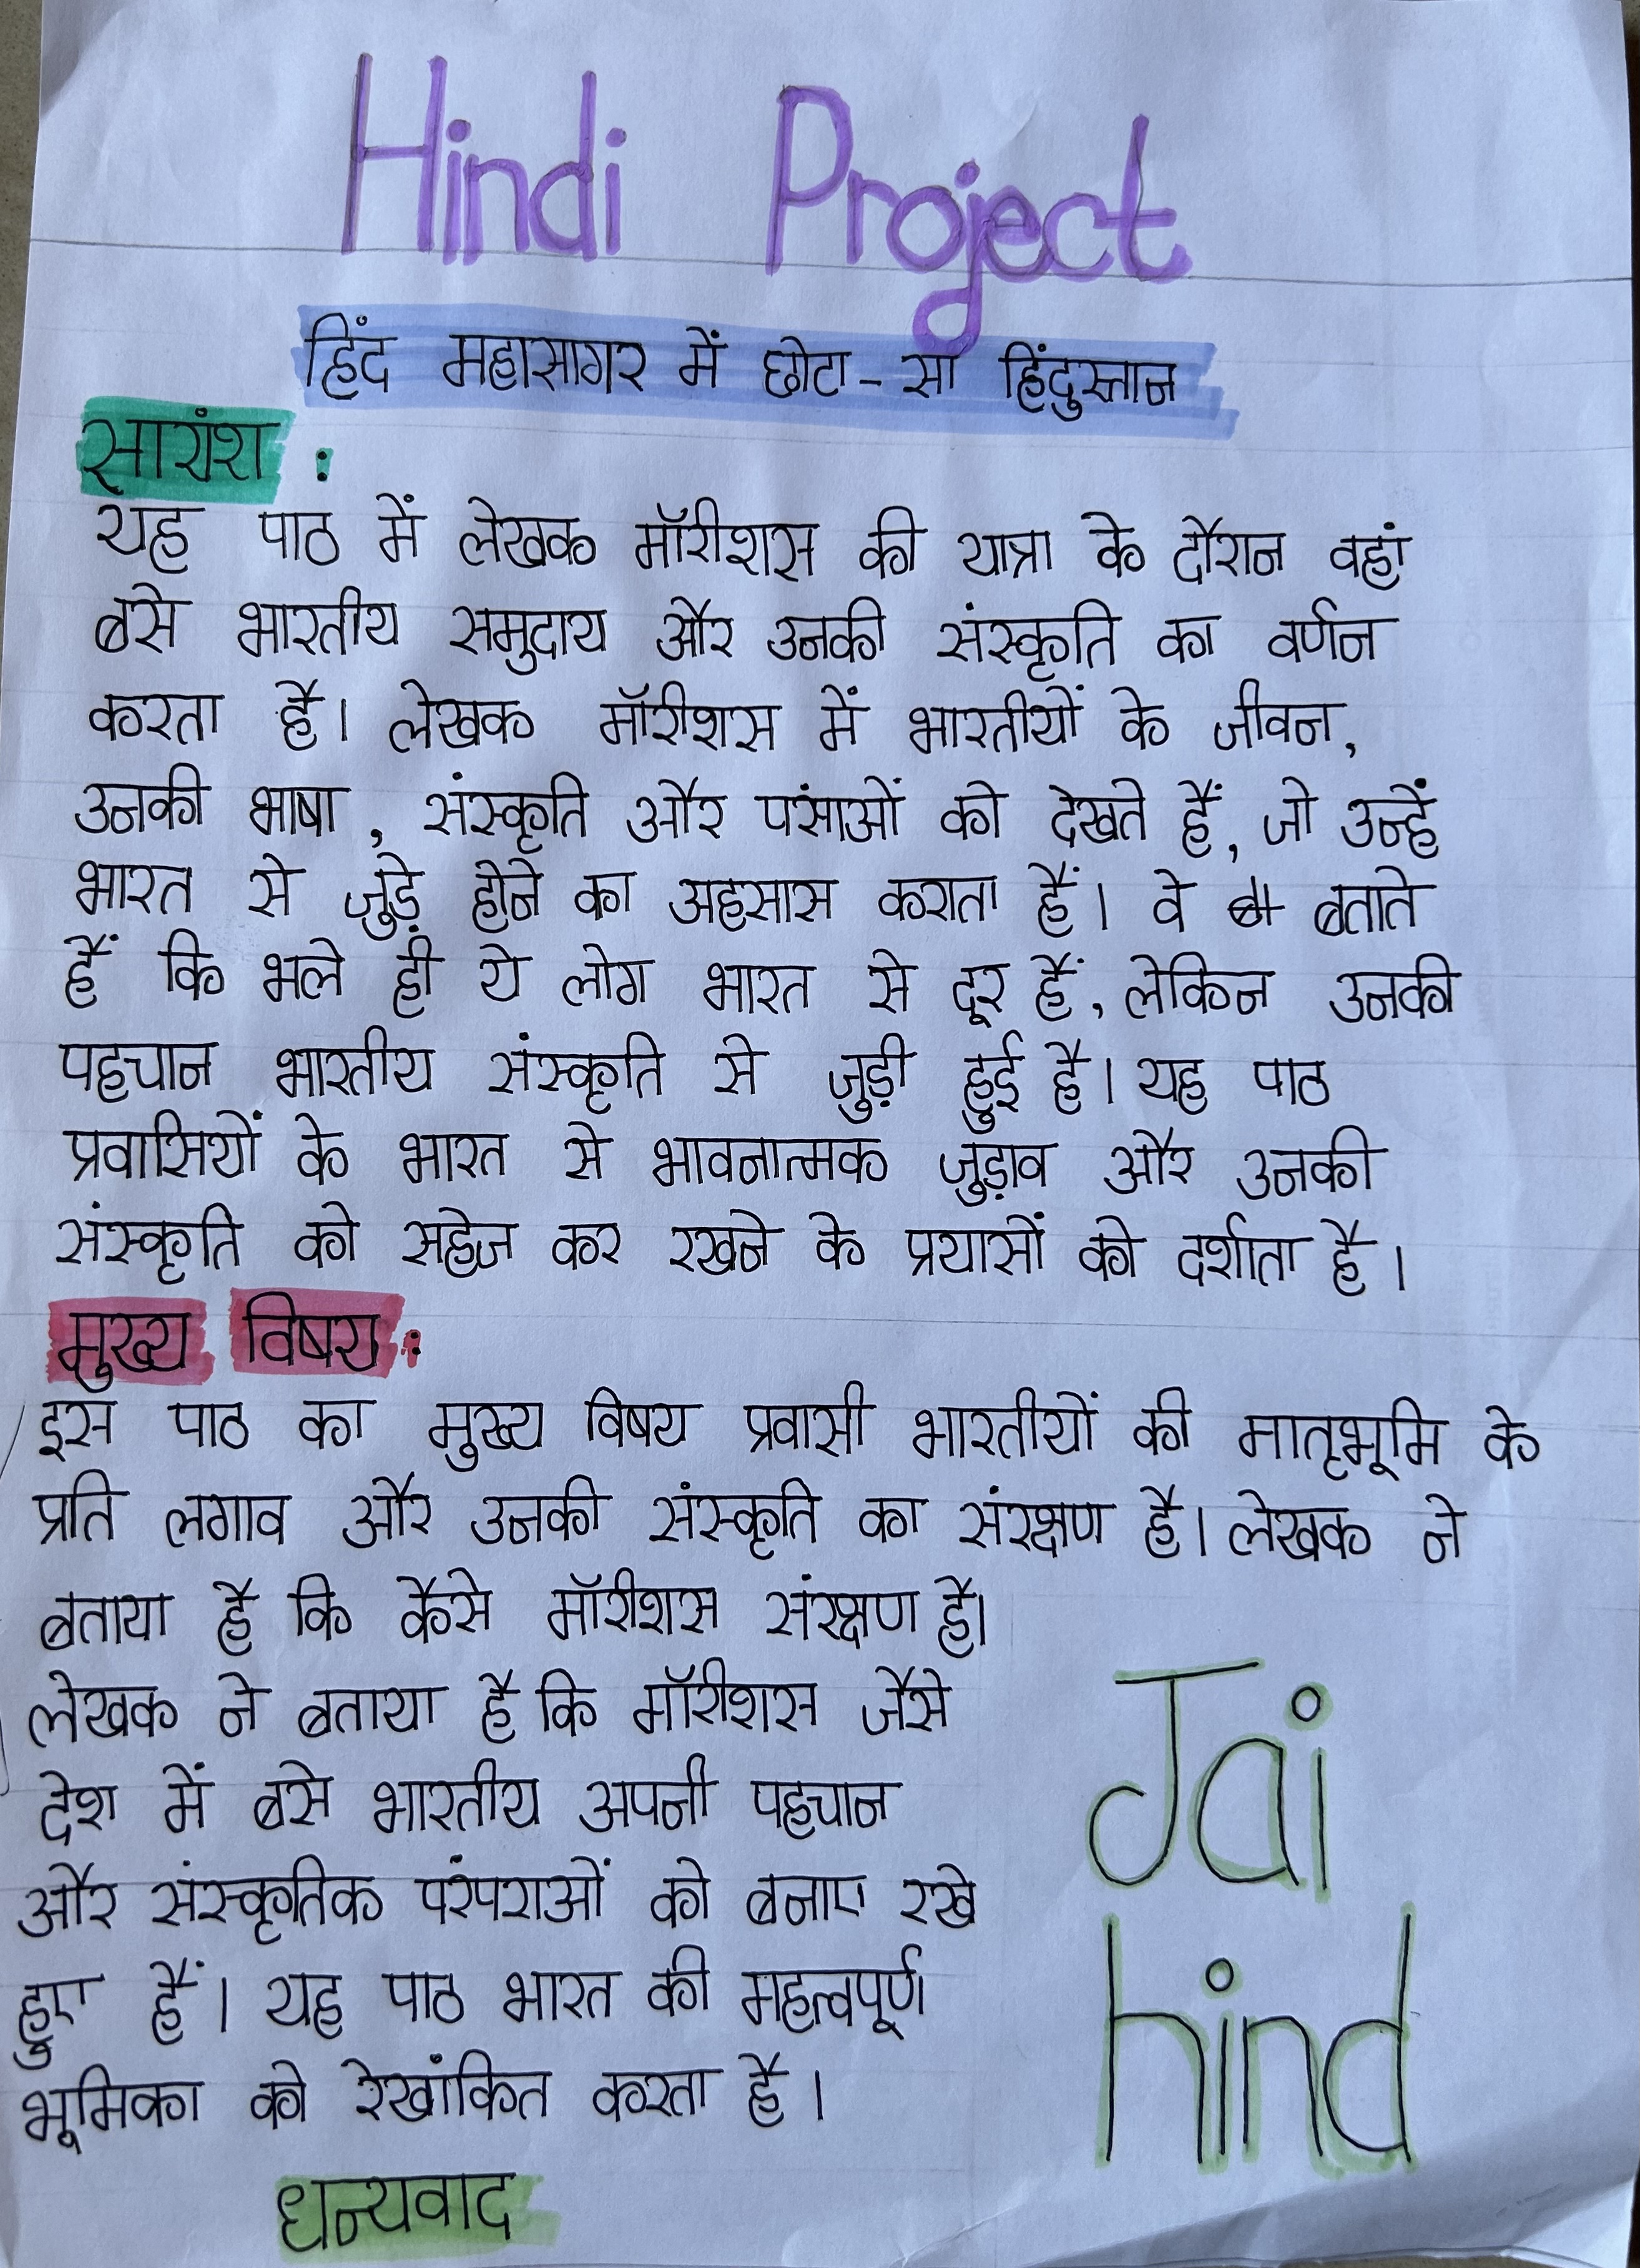 Hindi Project
हिंद महासागर में छोटा-सा हिंदुस्तान
सारांश :
यह पाठ में लेखक मॉरीशस की यात्रा के दौरान वहां
बसे भारतीय समुदाय और उनकी संस्कृति का वर्णन
करता है। लेखक मॉरीशस में भारतीयों के जीवन,
उनकी भाषा, संस्कृति और पंसाओं को देखते हैं, जो उन्हें
भारत से जुड़े होने का अहसास कराता हैं। वे बताते
हैं कि भले ही ये लोग भारत से दूर हैं, लेकिन उनकी
पहचान भारतीय संस्कृति से जुड़ी हुई है। यह पाठ
प्रवासियों के भारत से भावनात्मक जुड़ाव और उनकी
संस्कृति को सहेज कर रखने के प्रयासों को दर्शाता है।
मुख्य विषय:
इस पाठ का मुख्य विषय प्रवासी भारतीयों की मातृभूमि के
प्रति लगाव और उनकी संस्कृति का संरक्षण है। लेखक ने
बताया है कि कैसे मॉरीशस संरक्षण है।
लेखक ने बताया है कि मॉरीशस जैसे
देश में बसे भारतीय अपनी पहचान
और संस्कृतिक परंपराओं को बनाए रखे
हुए हैं। यह पाठ भारत की महत्वपूर्ण
भूमिका को रेखांकित करता है।
Jai
hind
धन्यवाद